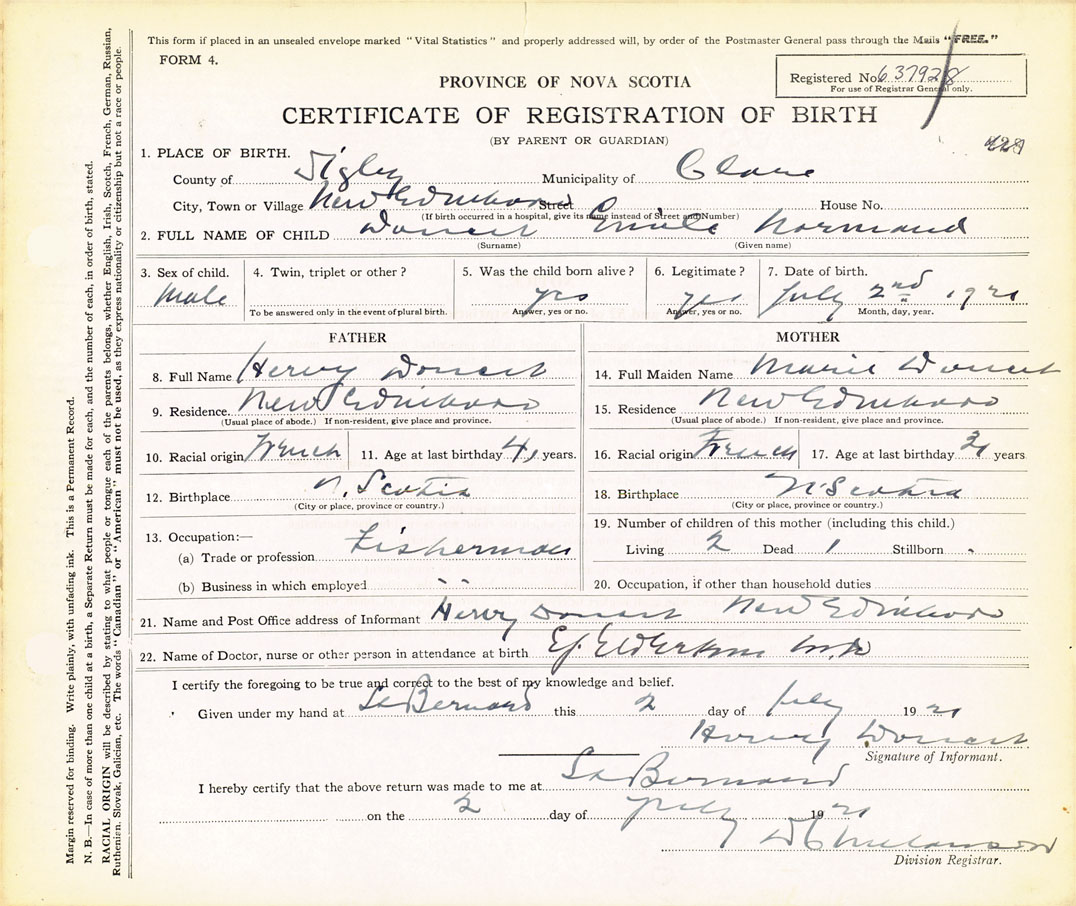 This form if placed in an unsealed envelope marked "Vital Statistics" and properly addressed will, by order of the Postmaster General pass through the Mails "FREE."
FORM 4.
Registered No. 637928
For use of Registrar General only.
PROVINCE OF NOVA SCOTIA
CERTIFICATE OF REGISTRATION OF BIRTH
(BY PARENT OR GUARDIAN)
1. PLACE OF BIRTH.
County of Digby Municipality of Clare
City, Town or Village New Edinboro Street House No.
(If birth occurred in a hospital, give its name instead of Street and Number)
2. FULL NAME OF CHILD Doucet Emile Normand
(Surname) (Given name)
3. Sex of child. 4. Twin, triplet or other? 5. Was the child born alive? 6. Legitimate? 7. Date of birth.
Male yes yes July 2nd 1921
To be answered only in the event of plural birth. Answer, yes or no. Answer, yes or no. Month, day, year.
FATHER
8. Full Name Hervy Doucet
9. Residence. New Edinboro
(Usual place of abode.) If non-resident, give place and province.
10. Racial origin French 11. Age at last birthday years.
12. Birthplace N. Scotia
(City or place, province or country.)
13. Occupation:—
(a) Trade or profession Fisherman
(b) Business in which employed " "
MOTHER
14. Full Maiden Name Marie Doucet
15. Residence New Edinboro
(Usual place of abode.) If non-resident, give place and province.
16. Racial origin French 17. Age at last birthday years
18. Birthplace N Scotia
(City or place, province or country.)
19. Number of children of this mother (including this child.)
Living 2 Dead 1 Stillborn
20. Occupation, if other than household duties
21. Name and Post Office address of Informant Hervy Doucet New Edinboro
22. Name of Doctor, nurse or other person in attendance at birth E.J. Elderkin M.D.
I certify the foregoing to be true and correct to the best of my knowledge and belief.
Given under my hand at St Bernard this 2 day of July 1921
Hervy Doucet
Signature of Informant.
I hereby certify that the above return was made to me at St Bernard
on the 2 day of July 1921
Melanson
Division Registrar.
Margin reserved for binding. Write plainly, with unfading ink. This is a Permanent Record.
N. B.—In case of more than one child at a birth, a Separate Return must be made for each, and the number of each, in order of birth, stated.
RACIAL ORIGIN will be described by stating to what people or tongue each of the parents belongs, whether English, Irish, Scotch, French, German, Russian,
Ruthenian, Slovak, Galician, etc. The words "Canadian" or "American" must not be used, as they express nationality or citizenship but not a race or people.